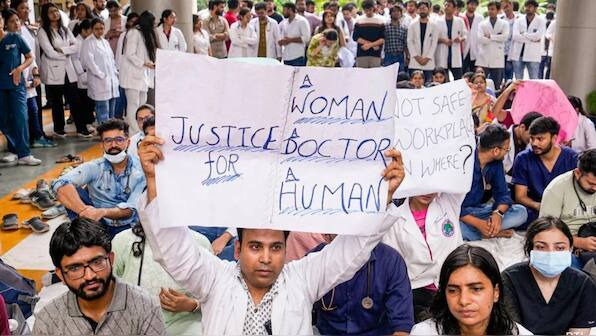 JUSTICE
FOR
A
WOMAN
A
DOCTOR
A
HUMAN
NOT SAFE
WORKPLACE
WHERE?